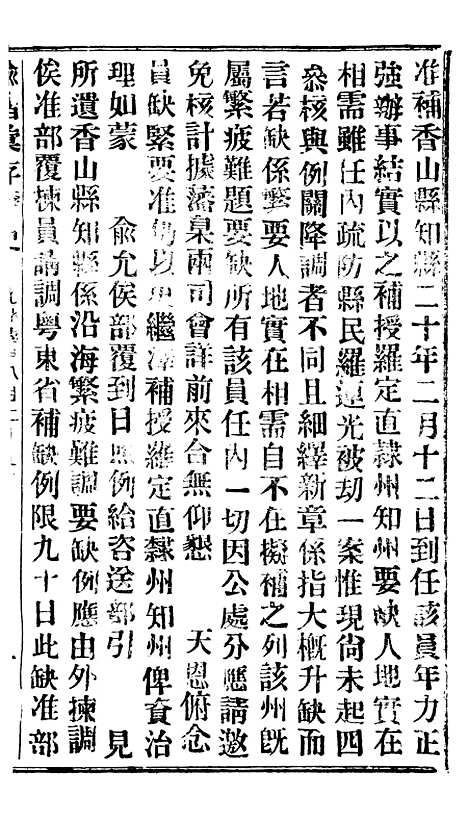 准補香山縣知縣二十年二月十二日到任該員年力正
強辦事結實以之補授羅定直隸州知州要缺人地實在
相需雖任內疏防縣民羅運光被刧一案惟現尙未起四
叅核與例關降調者不同且細繹新章係指大槪升缺而
言若缺係繁要人地實在相需自不在擬補之列該州旣
屬繁疲難題要缺所有該員任內一切因公處分應請邀
免核計據藩臬兩司會詳前來合無仰懇　天恩俯念
員缺緊要准仍以 繼 補授羅定直隸州知州俾資治
理如蒙　兪允俟部覆到日照例給咨送部引　見
所遺香山縣知縣係沿海繁疲難調要缺例應由外揀調
俟准部覆揀員請調粵東省補缺例限九十日此缺准部